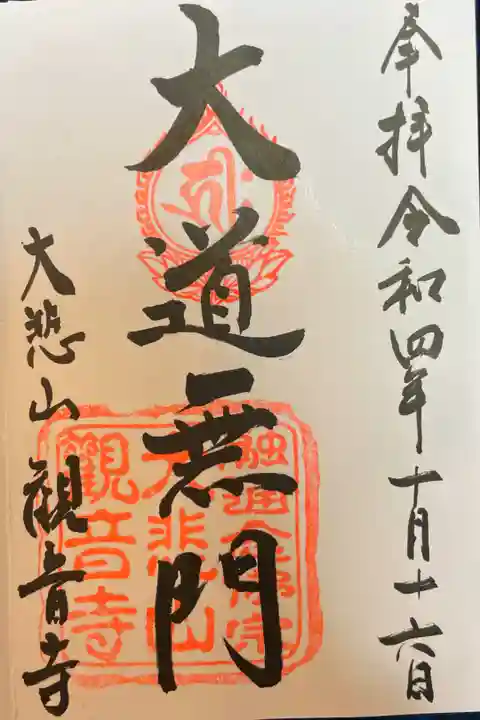 奉拝 令和四年十月十六日
大道無門
大悲山 観音寺
融通念佛宗
大悲山
観音寺